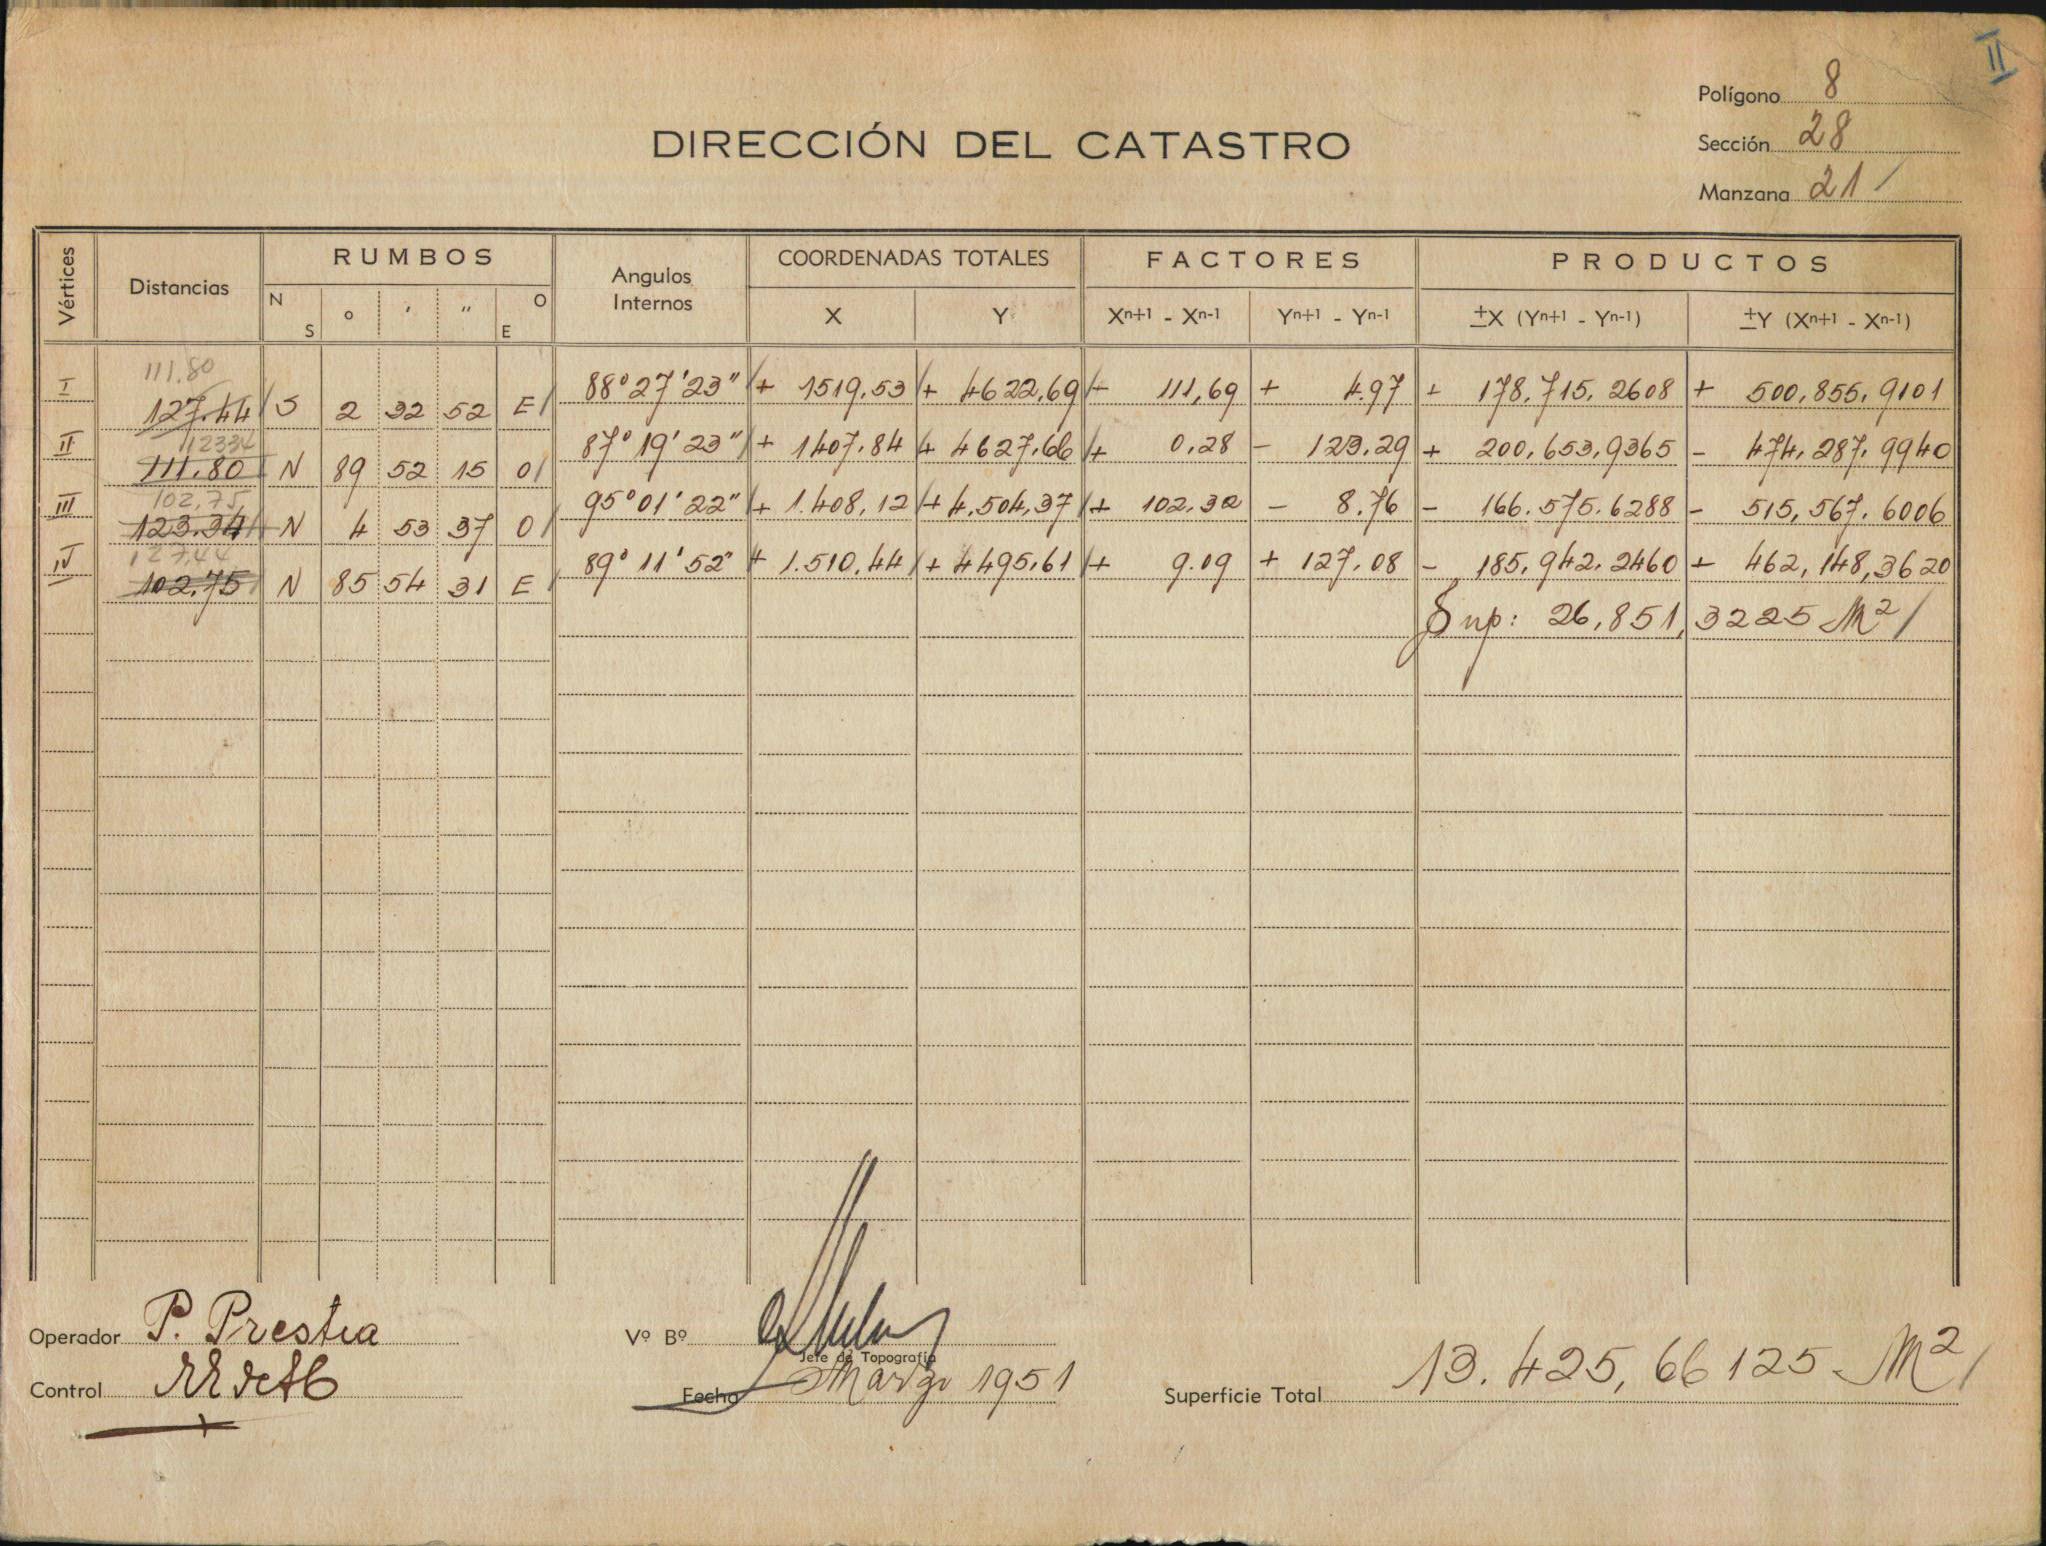 II
Polígono 8
Sección 28
Manzana 21
DIRECCIÓN DEL CATASTRO
Vértices Distancias RUMBOS Angulos Internos COORDENADAS TOTALES FACTORES PRODUCTOS
N S ° ' " O E X Y Xn+1 - Xn-1 Yn+1 - Yn-1 ±X (Yn+1 - Yn-1) ±Y (Xn+1 - Xn-1)
111.80
I 127.44 S 2 32 52 E 88° 27' 23" + 1519,53 + 4622,69 + 111,69 + 4.97 + 178.715.2608 + 500,855,9101
12334
II 111.80 N 89 52 15 O 87° 19' 23" + 1407.84 + 4627,66 + 0.28 - 123.29 + 200,653,9365 - 474,287.9940
102,75
III 123.34 N 4 53 37 O 95° 01' 22" + 1.408,12 + 4.504,37 + 102.32 - 8.76 - 166.575.6288 - 515,567.6006
127,44
IV 102.75 N 85 54 31 E 89° 11' 52" + 1.510.44 + 4495,61 + 9.09 + 127.08 - 185.942.2460 + 462,148,3620
Sup: 26,851,3225 M2
Operador P. Prestia
Vº Bº
Jefe de Topografía
Control
Fecha Marzo 1951
Superficie Total 13.425,66125 M2